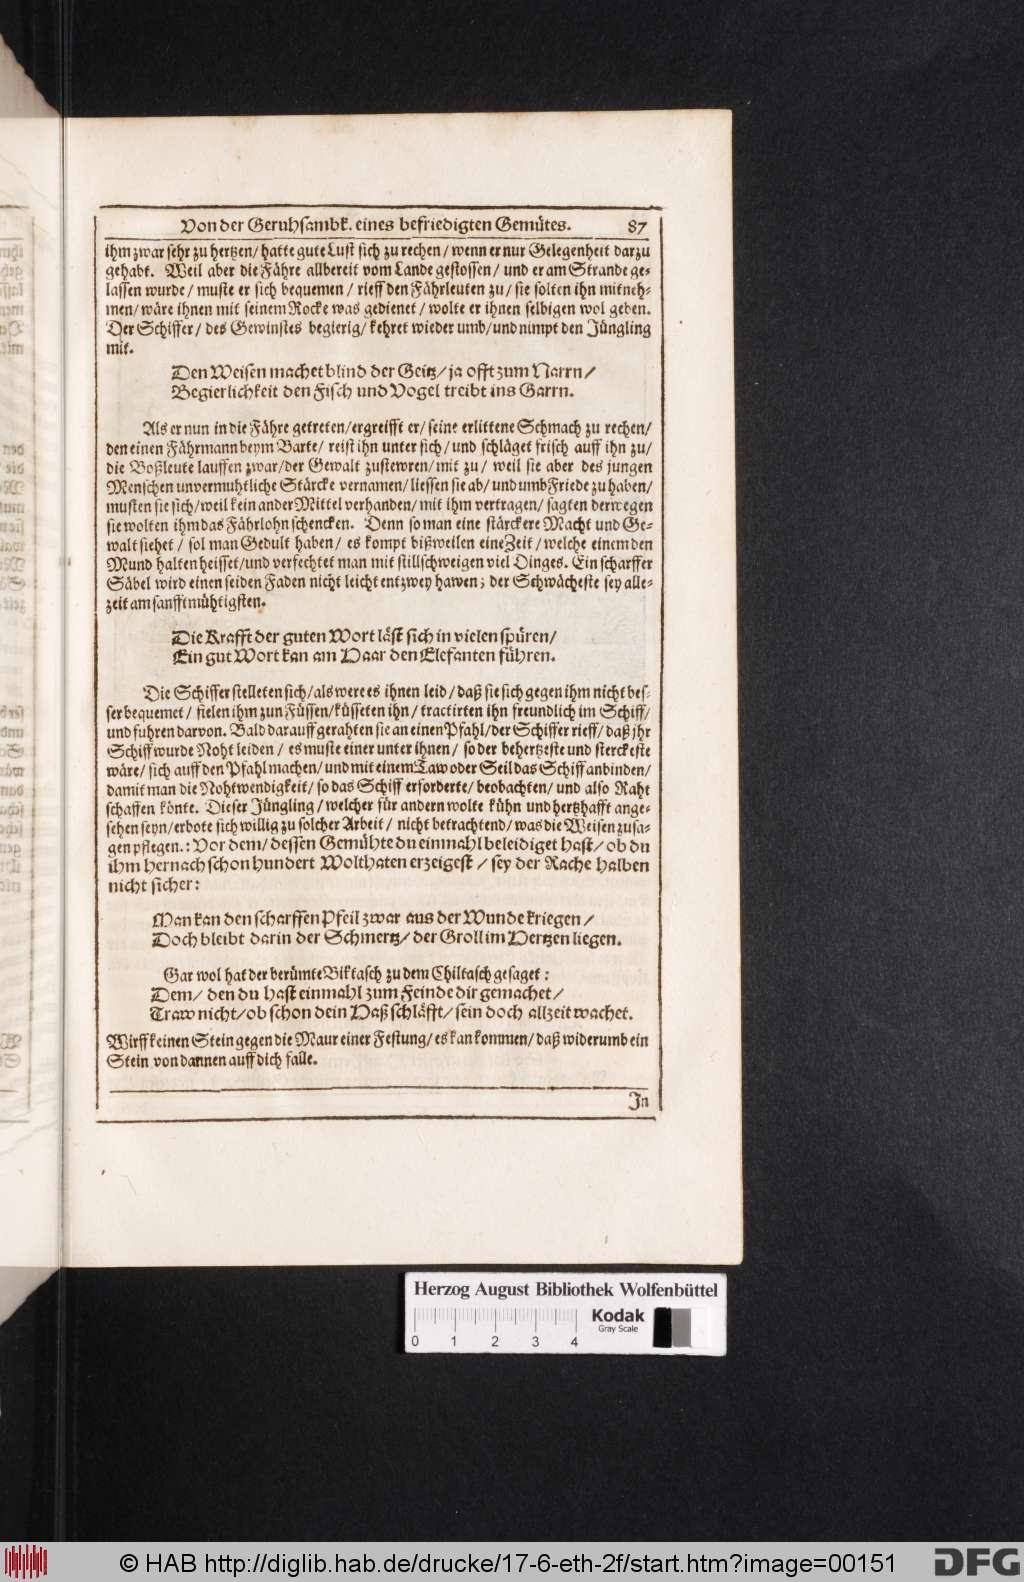 Von der Geruhsambk. eines befriedigten Gemütes. 87
ihm zwar sehr zu hertzen/ hatte gute Lust sich zu rechen/ wenn er nur Gelegenheit darzu
gehabt. Weil aber die Fähre allbereit vom Lande gestossen/ und er am Strande ge-
lassen wurde/ muste er sich bequemen/ rieff den Fährleuten zu/ sie solten ihn mitneh-
men/ wäre ihnen mit seinem Rocke was gedienet/ wolte er ihnen selbigen wol geben.
Der Schiffer/ des Gewinstes begierig/ kehret wieder umb/ und nimpt den Jüngling
mit.
Den Weisen machet blind der Geitz/ ja offt zum Narrn/
Begierlichkeit den Fisch und Vogel treibt ins Garrn.
Als er nun in die Fähre getreten/ ergreifft er/ seine erlittene Schmach zu rechen/
den einen Fährmann beym Barte/ reist ihn unter sich/ und schläget frisch auff ihn zu/
die Boßleute lauffen zwar/ der Gewalt zustewren/ mit zu/ weil sie aber des jungen
Menschen unvermuhtliche Stärcke vernamen/ liessen sie ab/ und umb Friede zu haben/
musten sie sich/ weil kein ander Mittel verhanden/ mit ihm vertragen/ sagten derwegen
sie wolten ihm das Fährlohn schencken. Denn so man eine stärckere Macht und Ge-
walt siehet/ sol man Gedult haben/ es kompt bißweilen eine Zeit/ welche einem den
Mund halten heisset/ und verfechtet man mit stillschweigen viel Dinges. Ein scharffer
Säbel wird einen seiden Faden nicht leicht entzwey hawen; der Schwächeste sey alle-
zeit am sanfftmühtigsten.
Die Krafft der guten Wort läst sich in vielen spüren/
Ein gut Wort kan am Haar den Elefanten führen.
Die Schiffer stelleten sich/ als were es ihnen leid/ daß sie sich gegen ihm nicht bes-
ser bequemet/ fielen ihm zun Füssen/ küsseten ihn/ tractirten ihn freundlich im Schiff/
und fuhren darvon. Bald darauff gerahten sie an einen Pfahl/ der Schiffer rieff/ daß jhr
Schiff wurde Noht leiden/ es muste einer unter ihnen/ so der behertzeste und sterckeste
wäre/ sich auff den Pfahl machen/ und mit einem Taw oder Seil das Schiff anbinden/
damit man die Nohtwendigkeit/ so das Schiff erforderte/ beobachten/ und also Raht
schaffen könte. Dieser Jüngling/ welcher für andern wolte kühn und hertzhafft ange-
sehen seyn/ erbote sich willig zu solcher Arbeit/ nicht betrachtend/ was die Weisen zusa-
gen pflegen.: Vor dem/ dessen Gemühte du einmahl beleidiget hast/ ob du
ihm hernach schon hundert Wolthaten erzeigest/ sey der Rache halben
nicht sicher:
Man kan den scharffen Pfeil zwar aus der Wunde kriegen/
Doch bleibt darin der Schmertz/ der Groll im Hertzen liegen.
Gar wol hat der berümte Biktasch zu dem Chiltasch gesaget:
Dem/ den du hast einmahl zum Feinde dir gemachet/
Traw nicht/ ob schon dein Haß schläfft/ sein doch allzeit wachet.
Wirff keinen Stein gegen die Maur einer Festung/ es kan kommen/ daß widerumb ein
Stein von dannen auff dich falle.
In
Herzog August Bibliothek Wolfenbüttel
0 1 2 3 4
Kodak
Gray Scale
© HAB http://diglib.hab.de/drucke/17-6-eth-2f/start.htm?image=00151
DFG